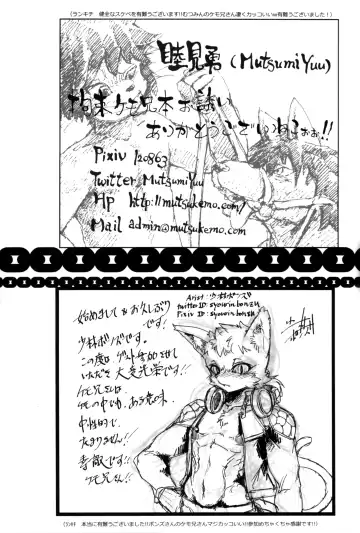 (ランキチ　健全なスケベを有難うございます!!むつみんのケモ兄さん凄くカッコいいw有難うございました!)
睦見勇(MutsumiYuu)
拘束ケモ兄本お誘い
ありがとうございいねこぉぉ!!
Pixiv 120863
Twitter MutsumiYuu
Hp http://mutsukemo.com/
Mail admin@mutsukemo.com
Artist:少林ボンズ
twitterID:syourinbonzu
Pixiv ID:syourinbonzu
始めまして&お久しぶり
です!
少林ボンズです。
この度はゲスト参加させて
いただき大変光栄です!!
ケモ兄さんは
中性的で
たまりません!!
素敵です!!
ケモ兄さん!!
(ランキチ　本当に有難うございました!!ボンズさんのケモ兄さんマジカッコいい!!参加めちゃくちゃ感謝です!!)